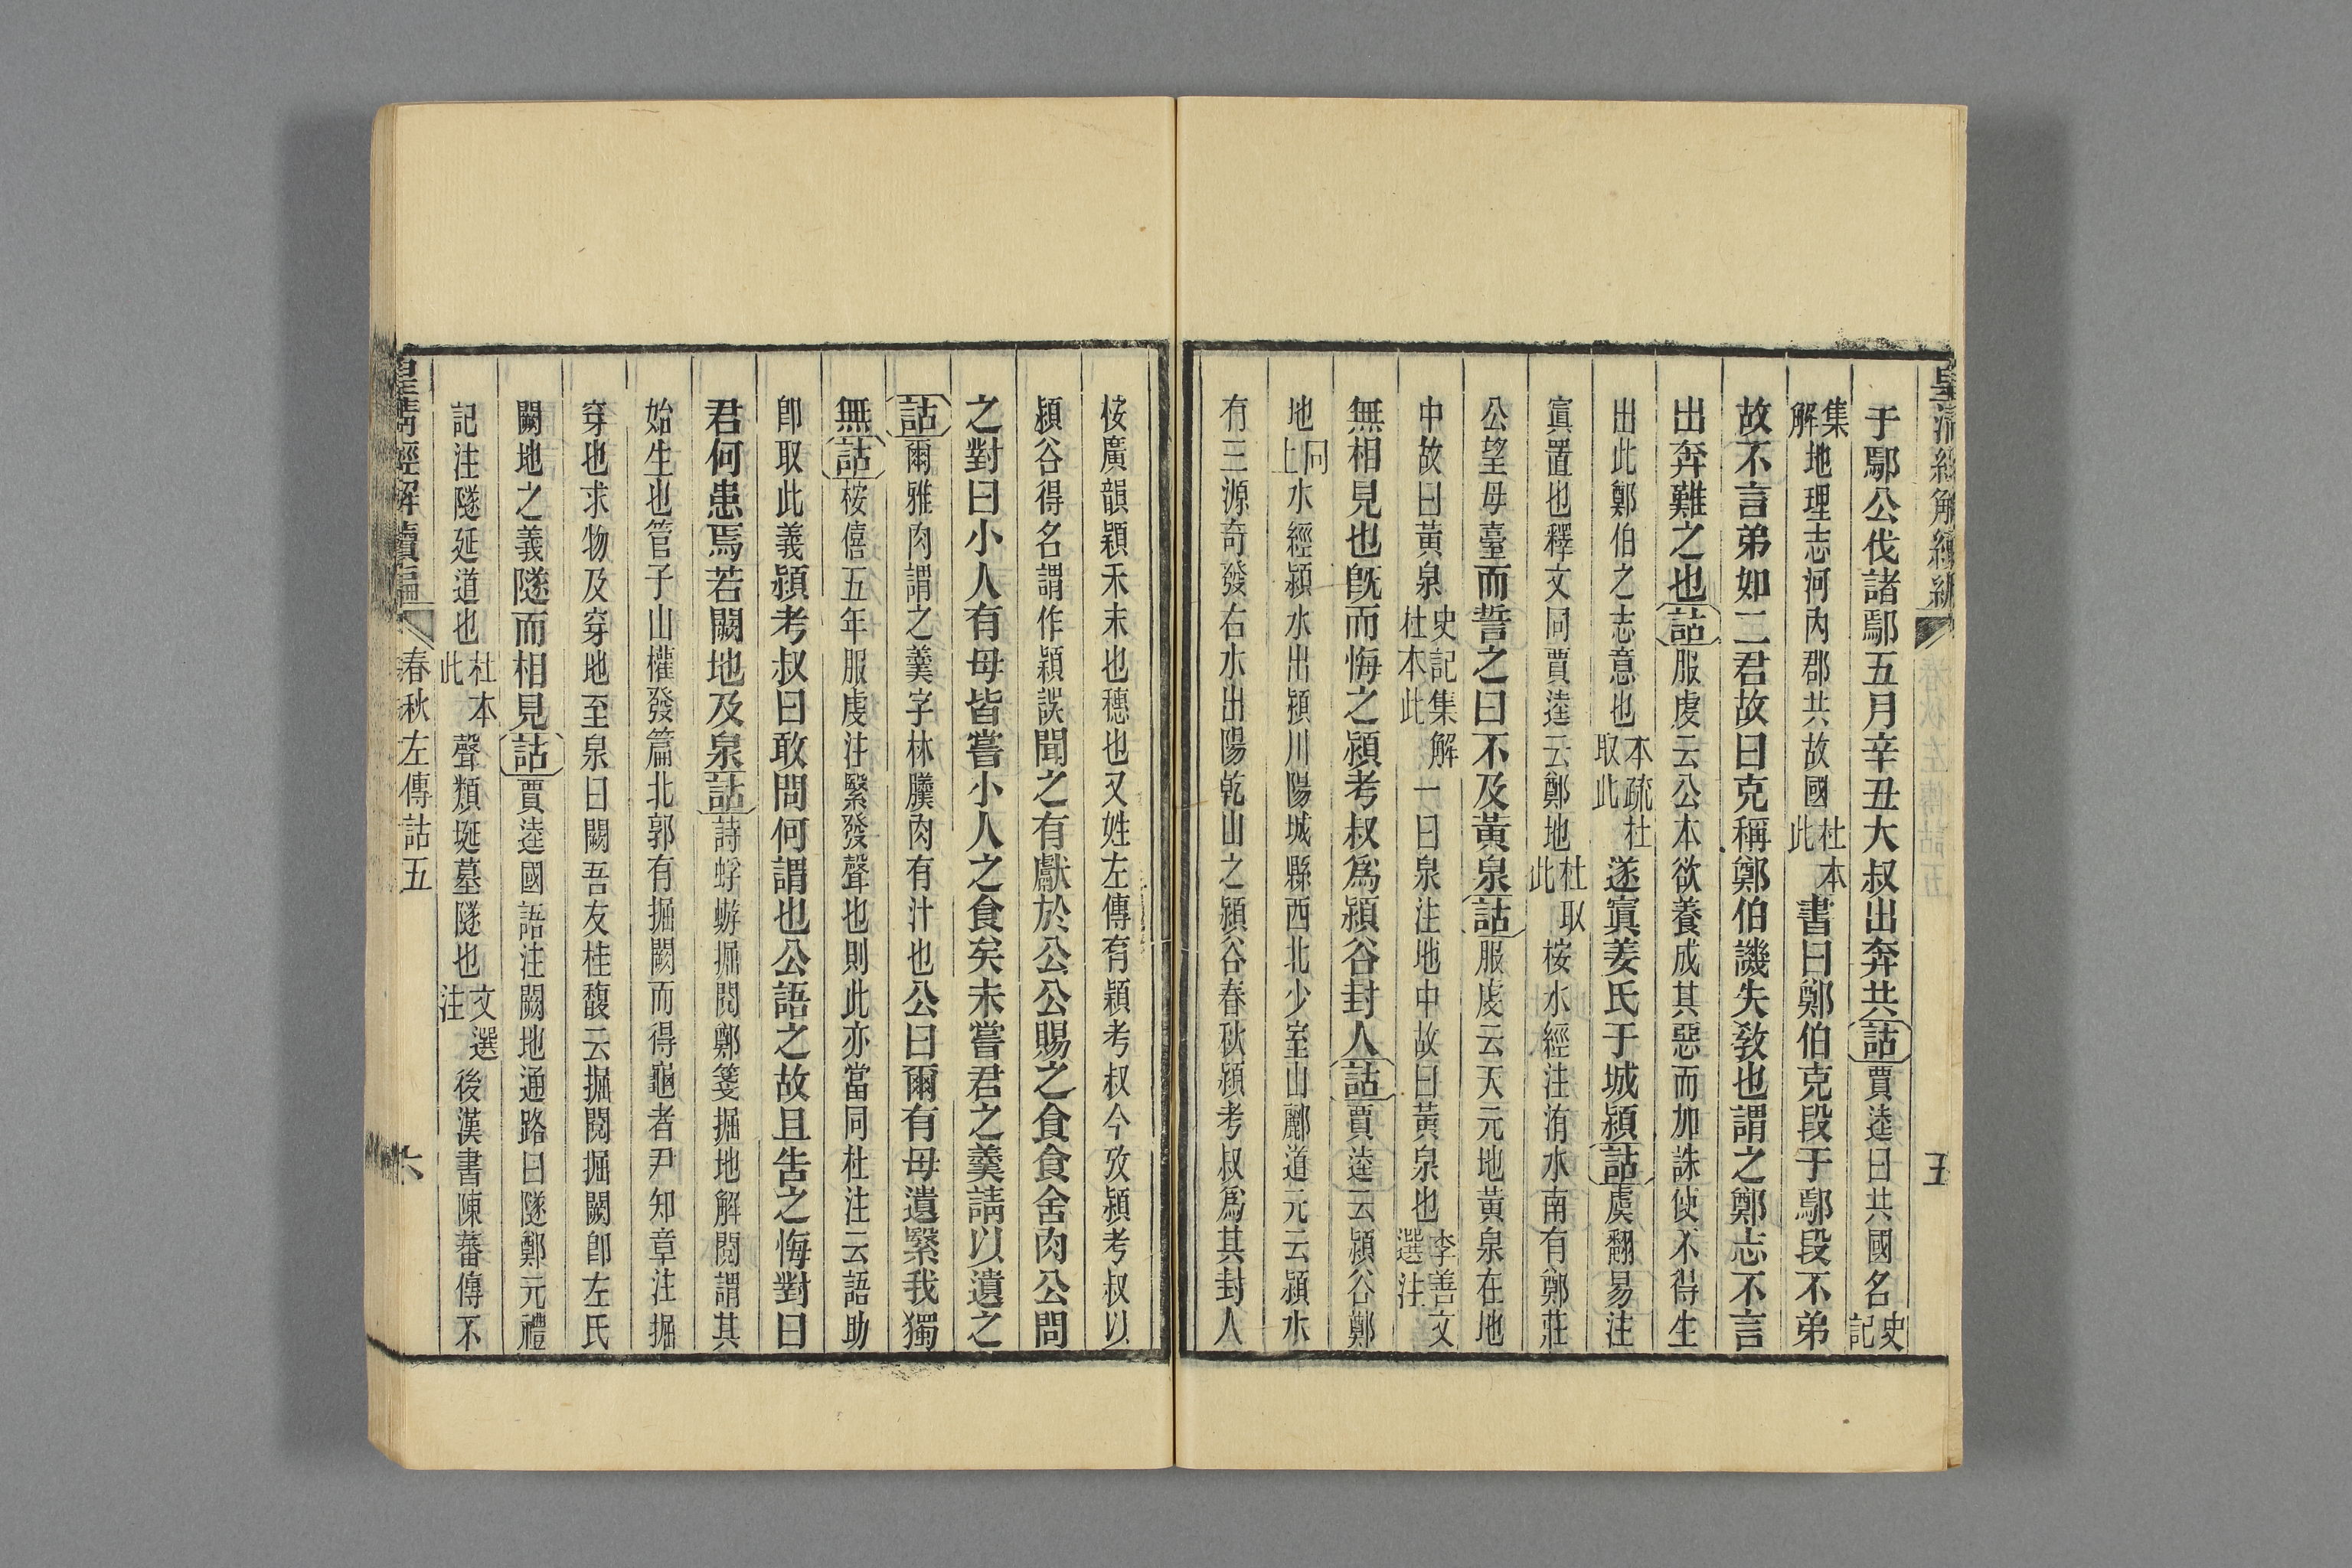 皇清經解續編
五
于鄢公伐諸鄢五月辛丑大叔出奔共詁賈逵曰共國名史記
集解地理志河內郡共故國杜本此書曰鄭伯克段于鄢段不弟
故不言弟如二君故曰克稱鄭伯譏失敎也謂之鄭志不言
出奔難之也詁服虔云公本欲養成其惡而加誅使不得生
出此鄭伯之志意也本疏杜取此遂寘姜氏于城潁詁虞翻易注
寘置也釋文同賈逵云鄭地杜取此桉水經注洧水南有鄭莊
公望母臺而誓之曰不及黃泉詁服虔云天元地黃泉在地
中故曰黃泉史記集解杜本此一曰泉注地中故曰黃泉也李善文選注
無相見也旣而悔之潁考叔爲潁谷封人詁賈逵云潁谷鄭
地同上水經潁水出潁川陽城縣西北少室山酈道元云潁水
有三源奇發右水出陽乾山之潁谷春秋潁考叔爲其封人
桉廣韻穎禾末也穗也又姓左傳有穎考叔今攷潁考叔以
潁谷得名謂作穎誤聞之有獻於公公賜之食食舍肉公問
之對曰小人有母皆嘗小人之食矣未嘗君之羹請以遺之
詁爾雅肉謂之羹字林臛肉有汁也公曰爾有母遺繄我獨
無詁桉僖五年服虔注繄發聲也則此亦當同杜注云語助
卽取此義潁考叔曰敢問何謂也公語之故且告之悔對曰
君何患焉若闕地及泉詁詩蜉蝣掘閱鄭箋掘地解閱謂其
始生也管子山權發篇北郭有掘闕而得龜者尹知章注掘
穿也求物及穿地至泉曰闕吾友桂馥云掘閱掘闕卽左氏
闕地之義隧而相見詁賈逵國語注闕地通路曰隧鄭元禮
記注隧延道也杜本此聲類埏墓隧也文選注後漢書陳蕃傳不
皇清經解續編
春秋左傳詁五
六